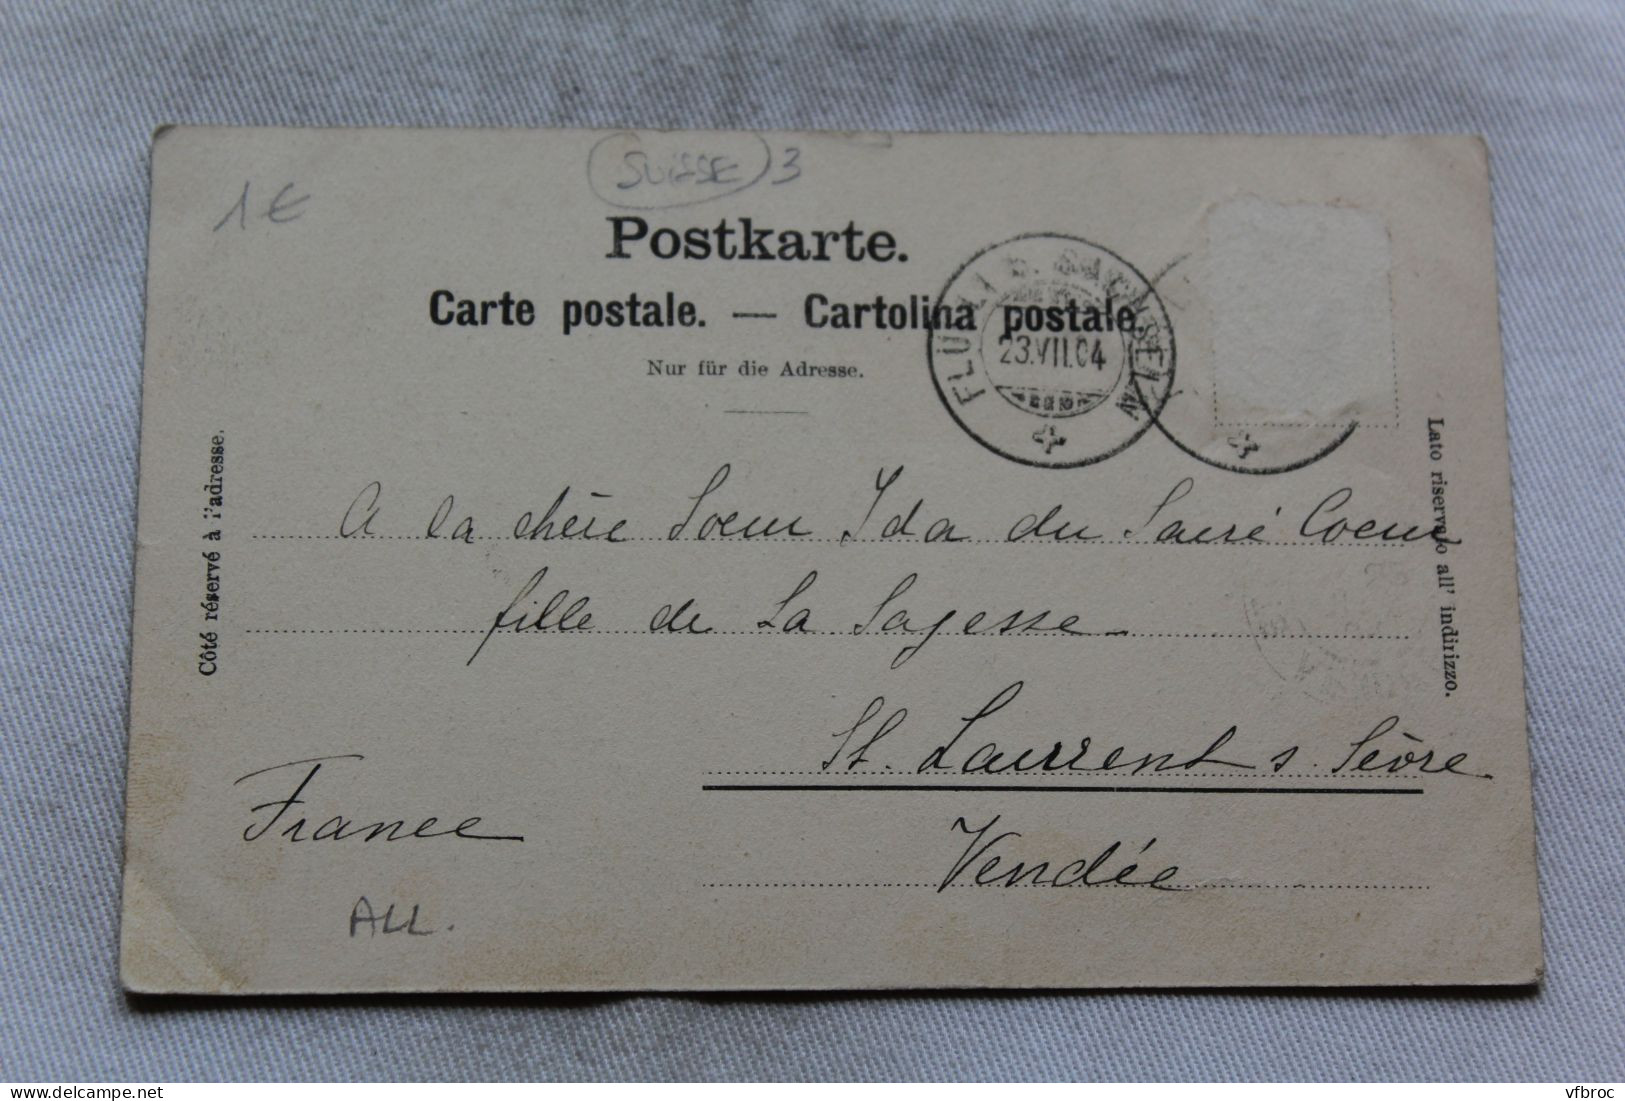 SUISSE 3
1 €
Postkarte.
Carte postale. — Cartolina postale.
Nur für die Adresse.
FLÜHLI b. SACHSELN
23.VII.04
Côté réservé à l'adresse.
Lato riservato all' indirizzo.
A la chère Soeur Ida du Sacré Coeur
fille de La Sagesse
St. Laurrent s Sèvre
Vendée
France
ALL.
vfbroc